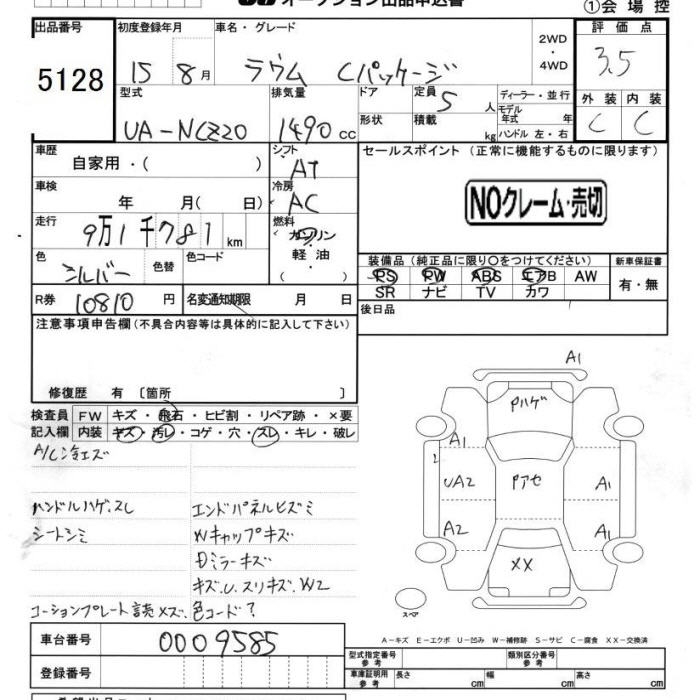 オークション出品申込書
①会場控
出品番号 初度登録年月 車名・グレード 評価点
5128 15 8月 ラウム Cパッケージ 2WD・4WD 3.5
型式 排気量 ドア 定員 5人 ディーラー・並行 外装 内装
モデル年式 年
UA-NCZ20 1490cc 形状 積載 kg ハンドル 左・右 C C
車歴 シフト セールスポイント (正常に機能するものに限ります)
自家用・( ) AT
車検 冷房 NOクレーム・売切
年 月( 日) AC
走行 燃料
9万1千781km ガソリン・軽油・( )
装備品 (純正品に限り○をつけてください) 新車保証書
色 色替 色コード PS PW ABS エアB AW 有・無
シルバー SR ナビ TV カワ
R券 10810円 名変通知期限 月 日 後日品
注意事項申告欄 (不具合内容等は具体的に記入して下さい)
修復歴 有 〔箇所 〕
検査員 FW キズ・飛石・ヒビ割・リペア跡・×要
記入欄 内装 キズ・汚レ・コゲ・穴・スレ・キレ・破レ
A/C冷エズ
ハンドルハゲ.スレ エンドパネルヒズミ
シートシミ Wキャップキズ
Dミラーキズ
キズ.U.スリキズ.W2
コーションプレート読メズ.色コード?
A1
Pハゲ
A1
UA2 Pアセ A1
A2 A1
XX
スペア
A-キズ E-エクボ U-凹み W-補修跡 S-サビ C-腐食 XX-交換済
車台番号 0009585
型式指定番号 参考 類別区分番号 参考
登録番号 車庫証明用 参考 長さ cm 幅 cm 高さ cm